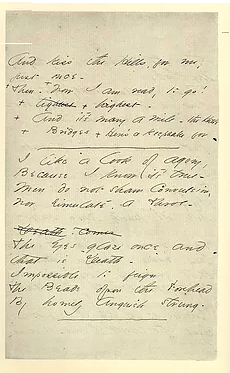 And kiss the Hills for me,
just once -
Then - now I am ready to go!
+ + brightest -
+ And it's many a mile - the last
+ Bridges + Here's a keepsake for
I like a look of Agony,
Because I know it's true -
Men do not sham Convulsion,
Nor simulate, a Throe -
Death, comes
The Eyes glaze once - and
that is Death -
Impossible to feign
The Beads upon the Forehead
By homely Anguish strung.